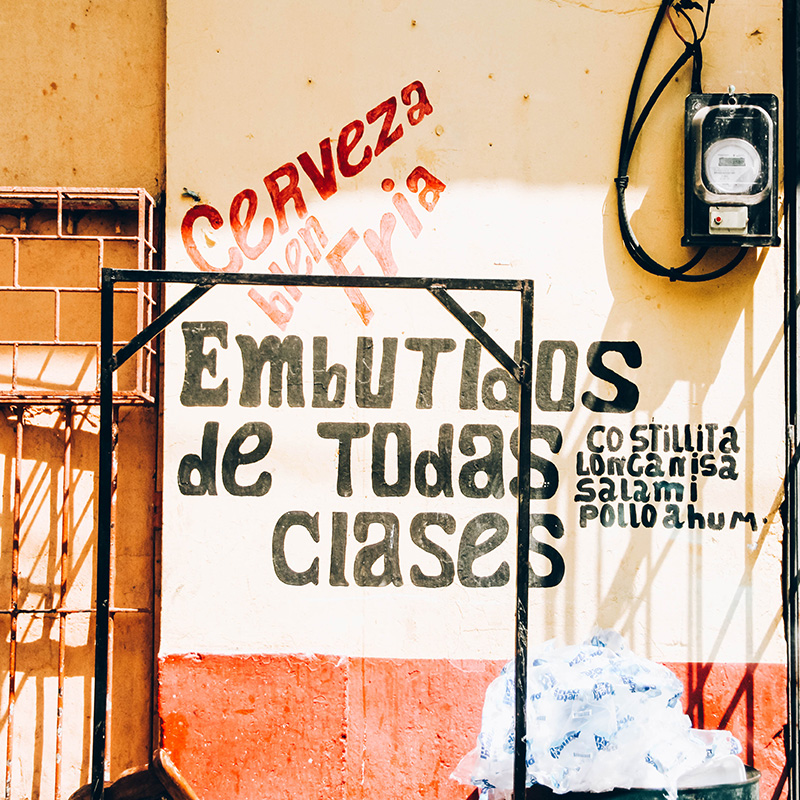 Cerveza
bien
Fria
Embutidos
de Todas
Clases
Costillita
Longanisa
Salami
Pollo ahum.